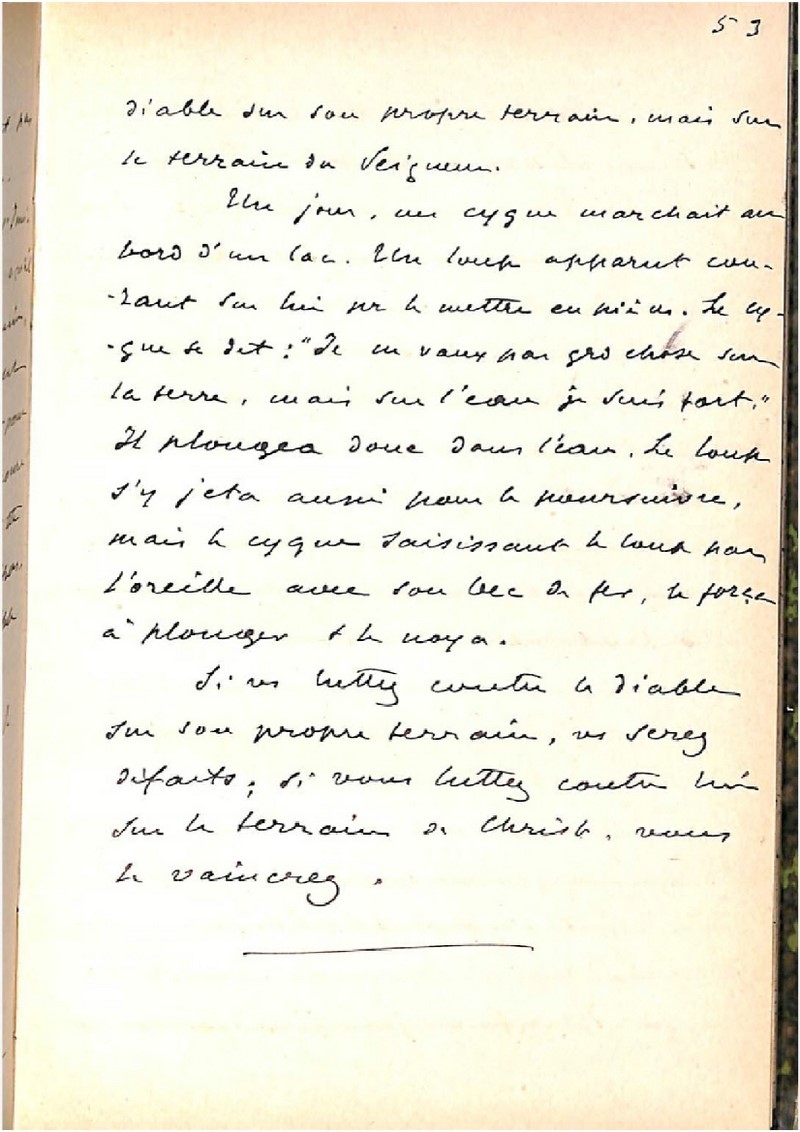 53
diable sur son propre terrain, mais sur
le terrain du Seigneur.
Un jour, un cygne marchait au
bord d'un lac. Un loup apparut cou-
-rant sur lui pr le mettre en pièces. Le cy-
-gne se dit : "Je ne vaux pas grd chose sur
la terre, mais sur l'eau je suis fort."
Il plongea donc dans l'eau. Le loup
s'y jeta aussi pour le poursuivre,
mais le cygne saisissant le loup par
l'oreille avec son bec de fer, le força
à plonger & le noya.
Si vs luttez contre le diable
sur son propre terrain, vs serez
défaits ; si vous luttez contre lui
sur le terrain de Christ, vous
le vaincrez.